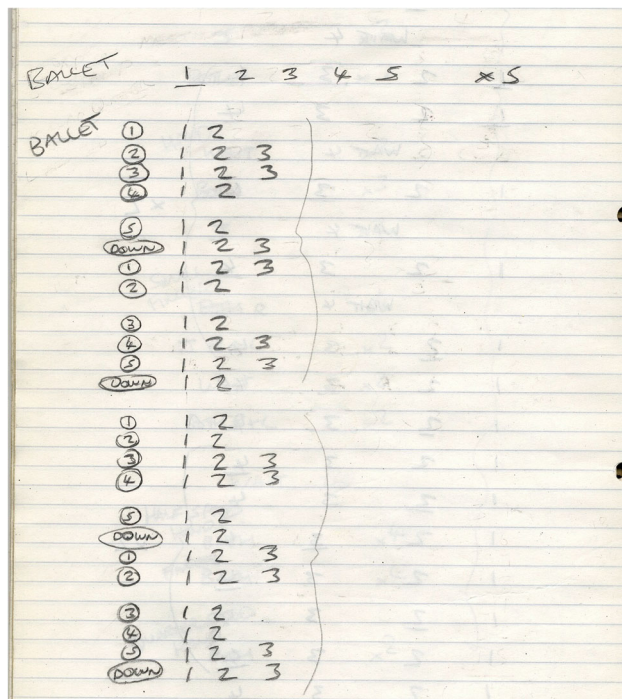 BALLET 1 2 3 4 5 x 5
BALLET ① 1 2
② 1 2 3
③ 1 2 3
④ 1 2
⑤ 1 2
DOWN 1 2 3
① 1 2 3
② 1 2
③ 1 2
④ 1 2 3
⑤ 1 2 3
DOWN 1 2
① 1 2
② 1 2
③ 1 2 3
④ 1 2 3
⑤ 1 2
DOWN 1 2
① 1 2 3
② 1 2 3
③ 1 2
④ 1 2
⑤ 1 2 3
DOWN 1 2 3